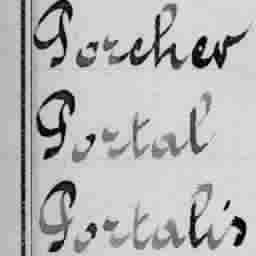 Porcher
Portal
Portalis